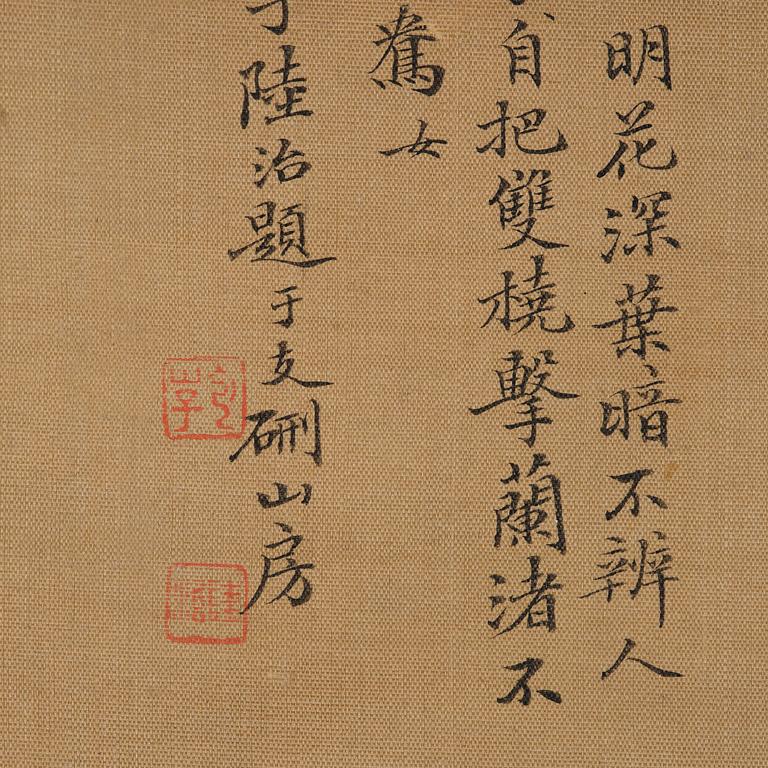 明花深葉暗不辨人
自把雙橈擊蘭渚不
鴦女
陸治題于支硎山房
包山子